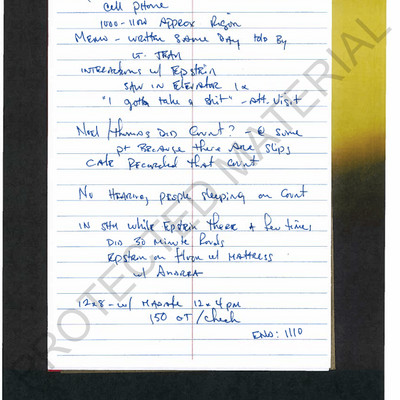 cell phone
1000-1100 Approx Region
Memo - written same day told by
Lt. Team
Interactions w/ Epstein
Saw in Elevator 1x
"I gotta take a shit" - Att. Visit
Noel / Thomas Did Count? - @ some
pt Because there are slips
Cate Recorded that count
No hearing people sleeping on count
In SHU while Epstein there a few times
Did 30 minute rounds
Epstein on floor w/ mattress
w/ Andrea
12x8 - w/ 12x4pm
150 OT/check
END: 1110
PROTECTED MATERIAL